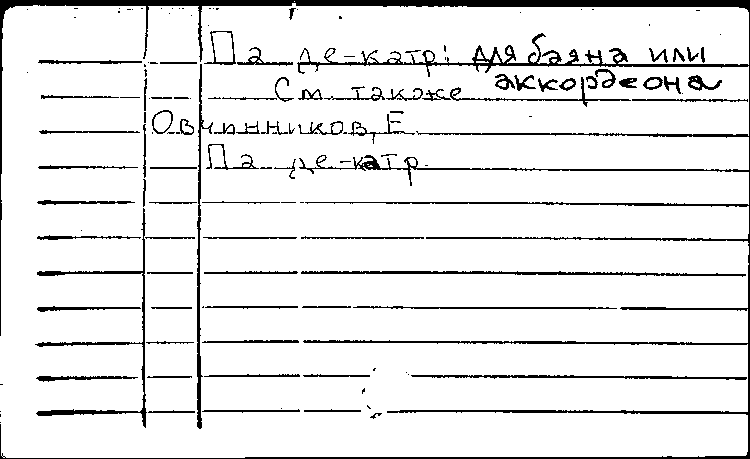 Па де-катр: для баяна или
аккордеона
См. также
Овчинников, Е.
Па де-катр.